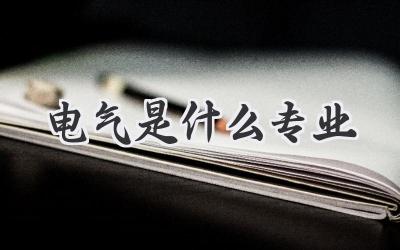 电气是什么专业